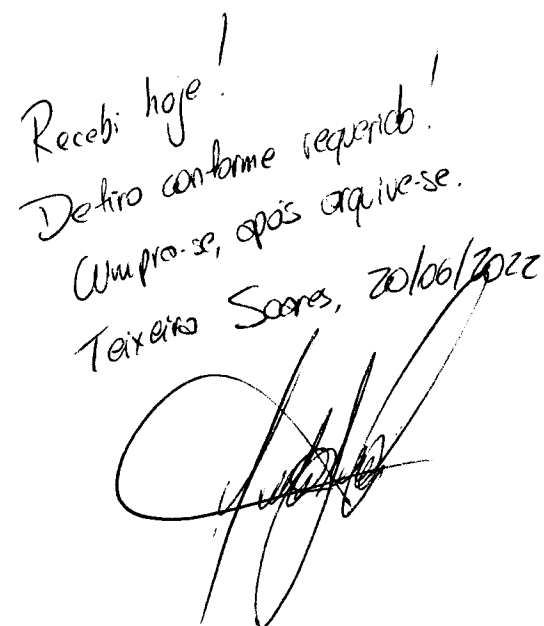 Recebi hoje!
Defiro conforme requerido!
Cumpra-se, após arquive-se.
Teixeira Soares, 20/06/2022